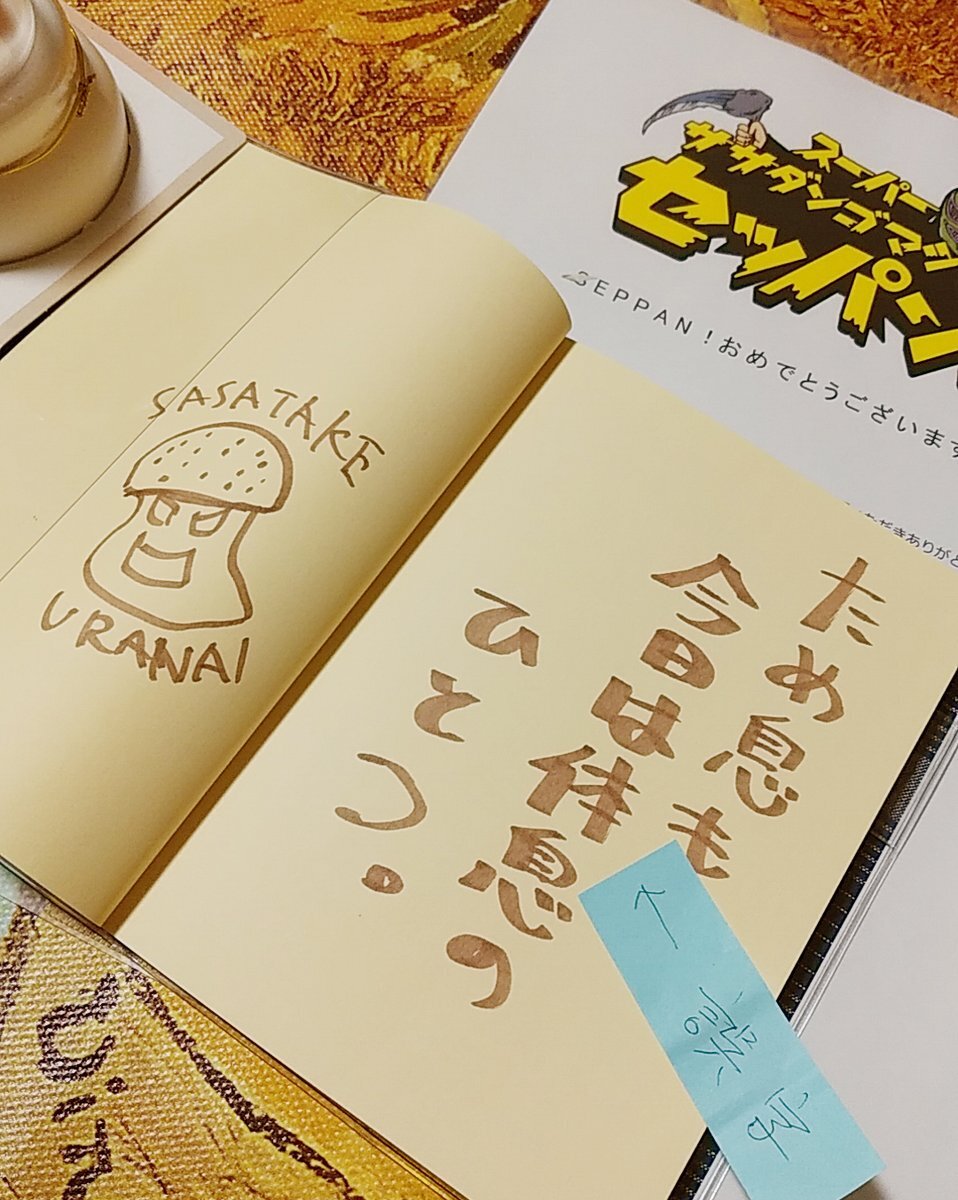 スーパー
ササダンゴマシ
セッパン
SEPPAN!おめでとうございます
ただきありがと
SASATAKE
URANAI
ため息も
今日は休息の
ひとつ。
↑ 誤字
Vin